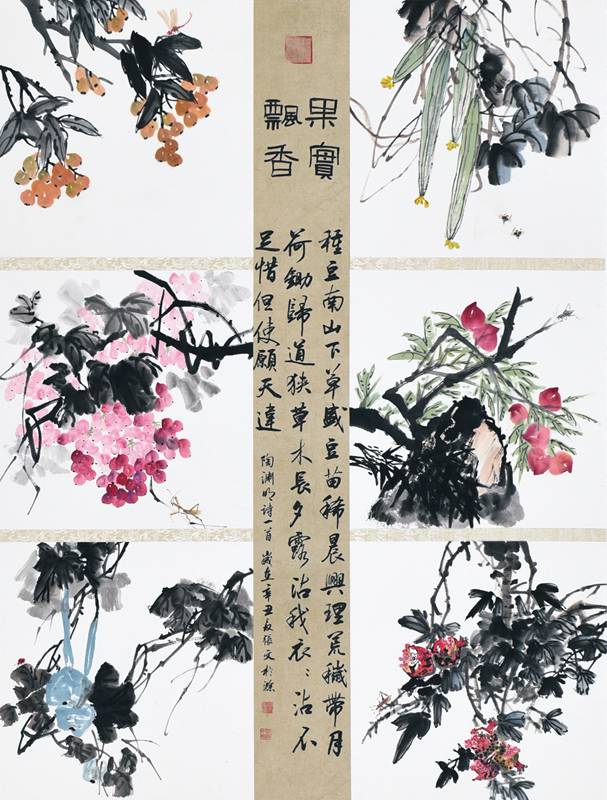 果實
飄香
種豆南山下草盛豆苗稀晨興理荒穢帶月
荷鋤歸道狹草木長夕露沾我衣〻沾不
足惜但使願无違
陶淵明诗一首 歲在辛丑 張文於